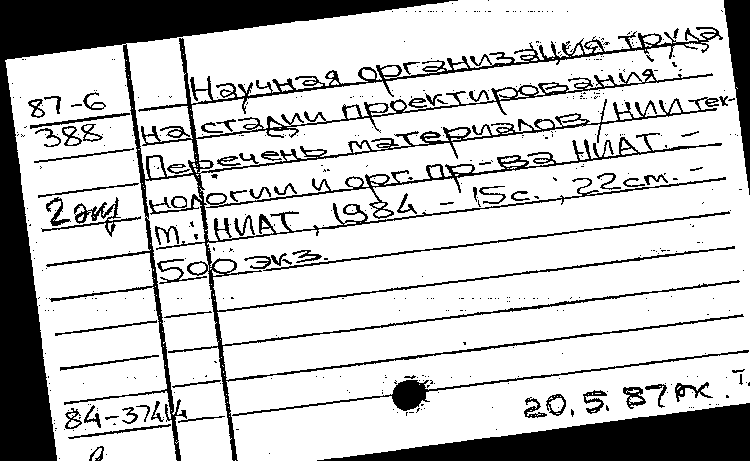 Научная организация труда
87-6
на стадии проектирования :
388
Перечень материалов / НИИ тех-
нологии и орг. пр-ва НИАТ. -
2 экз
М. : НИАТ, 1984. - 15 с. ; 22 см. -
500 экз.
84-37414
20. 5. 87